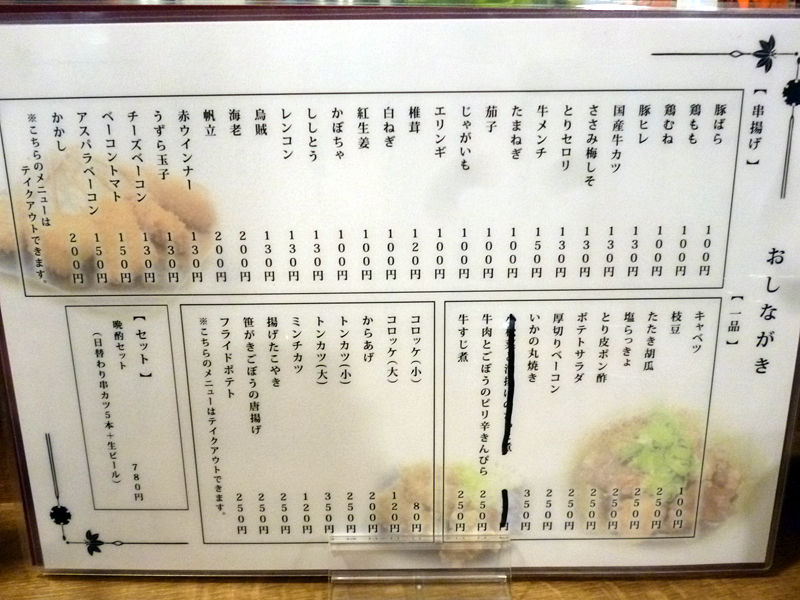 おしながき
【串揚げ】
豚ばら 100円
鶏もも 100円
鶏むね 100円
豚ヒレ 130円
国産牛カツ 130円
ささみ梅しそ 130円
とりセロリ 130円
牛メンチ 150円
たまねぎ 100円
茄子 100円
じゃがいも 100円
エリンギ 100円
椎茸 120円
白ねぎ 100円
紅生姜 100円
かぼちゃ 100円
ししとう 130円
レンコン 130円
烏賊 130円
海老 200円
帆立 200円
赤ウインナー 130円
うずら玉子 130円
チーズベーコン 130円
ベーコントマト 150円
アスパラベーコン 150円
かかし 200円
※こちらのメニューは
テイクアウトできます。
【一品】
キャベツ 100円
枝豆 250円
たたき胡瓜 250円
塩らっきょ 250円
とり皮ポン酢 250円
ポテトサラダ 250円
厚切りベーコン 250円
いかの丸焼き 350円
牛肉とごぼうのピリ辛きんぴら 250円
牛すじ煮 250円
コロッケ(小) 80円
コロッケ(大) 120円
からあげ 200円
トンカツ(小) 250円
トンカツ(大) 350円
ミンチカツ 120円
揚げたこやき 250円
笹がきごぼうの唐揚げ 250円
フライドポテト 250円
※こちらのメニューはテイクアウトできます。
【セット】
晩酌セット 780円
(日替わり串カツ5本+生ビール)